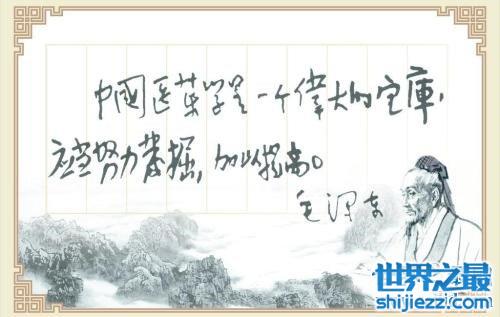 中國医药学是一个偉大的宝庫，
应当努力发掘，加以提高。
毛泽东
世界之最
shijiezzi.com